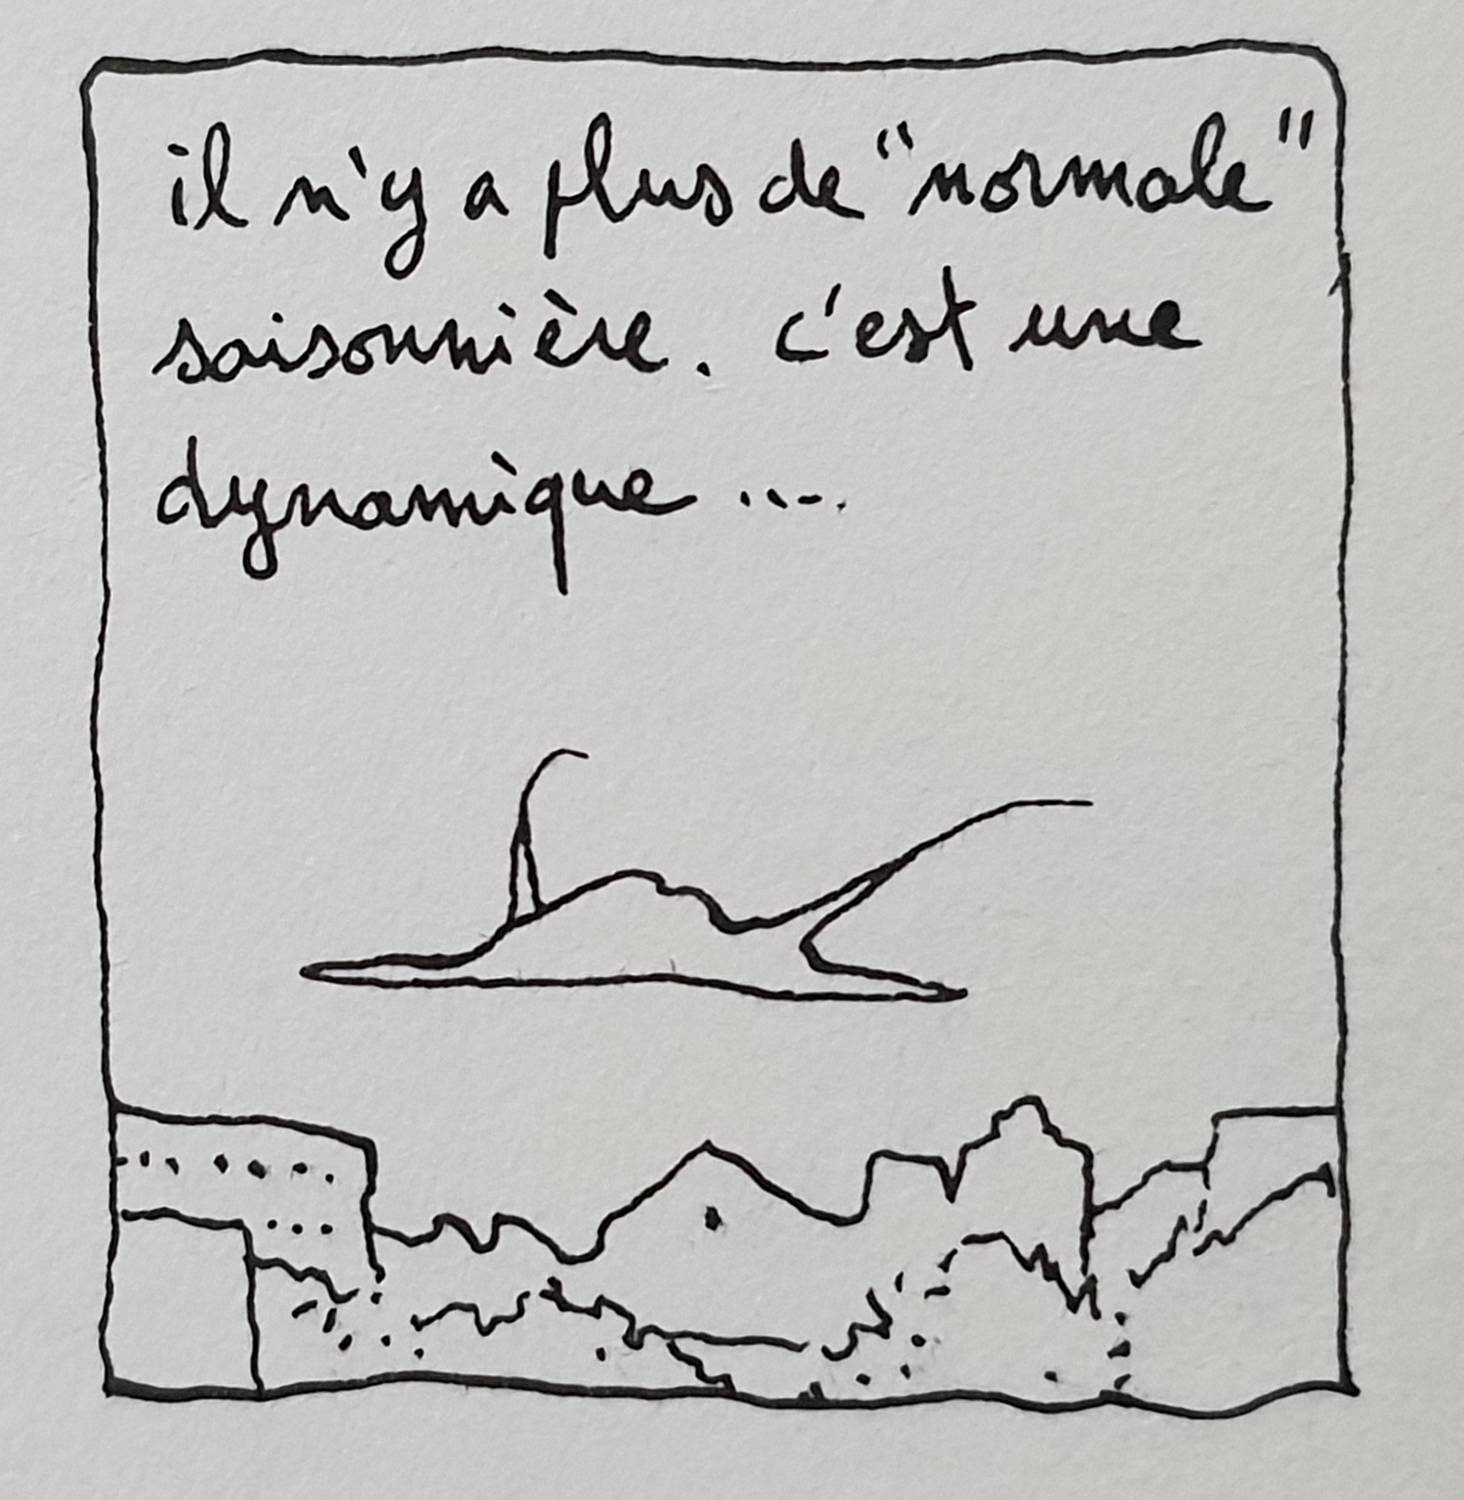 il n'y a plus de "normale"
saisonnière. c'est une
dynamique ....